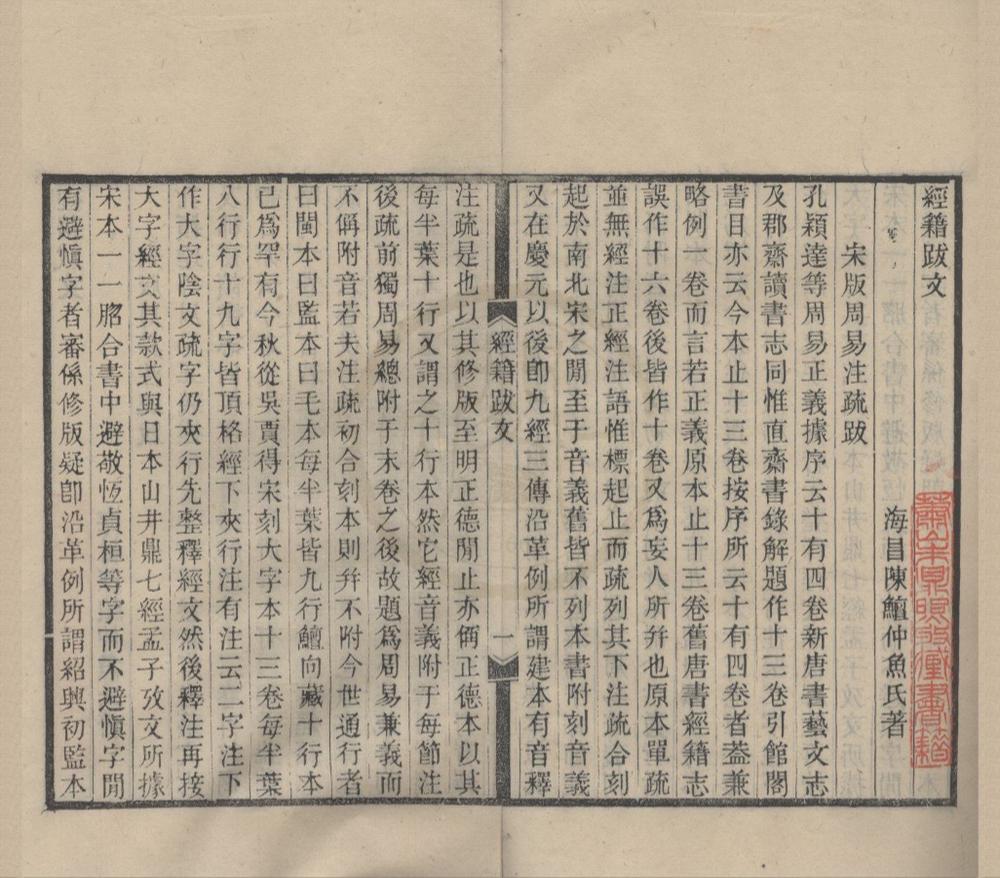 經籍跋文
海昌陳鱣仲魚氏著
宋版周易注疏跋
孔穎達等周易正義據序云十有四卷新唐書藝文志
及郡齋讀書志同惟直齋書錄解題作十三卷引館閣
書目亦云今本止十三卷按序所云十有四卷者葢兼
略例一卷而言若正義原本止十三卷舊唐書經籍志
誤作十六卷後皆作十卷又爲妄人所幷也原本單疏
並無經注正經注語惟標起止而疏列其下注疏合刻
起於南北宋之閒至于音義舊皆不列本書附刻音義
又在慶元以後卽九經三傳沿革例所謂建本有音釋
經籍跋文
一
注疏是也以其修版至明正德閒止亦偁正德本以其
每半葉十行又謂之十行本然它經音義附于每節注
後疏前獨周易總附于末卷之後故題爲周易兼義而
不偁附音若夫注疏初合刻本則幷不附今世通行者
曰閩本曰監本曰毛本每半葉皆九行鱣向藏十行本
已爲罕有今秋從吳賈得宋刻大字本十三卷每半葉
八行行十九字皆頂格經下夾行注有注云二字注下
作大字陰文疏字仍夾行先整釋經文然後釋注再接
大字經文其款式與日本山井鼎七經孟子攷文所據
宋本一一脗合書中避敬恆貞桓等字而不避愼字閒
有避愼字者審係修版疑卽沿革例所謂紹興初監本